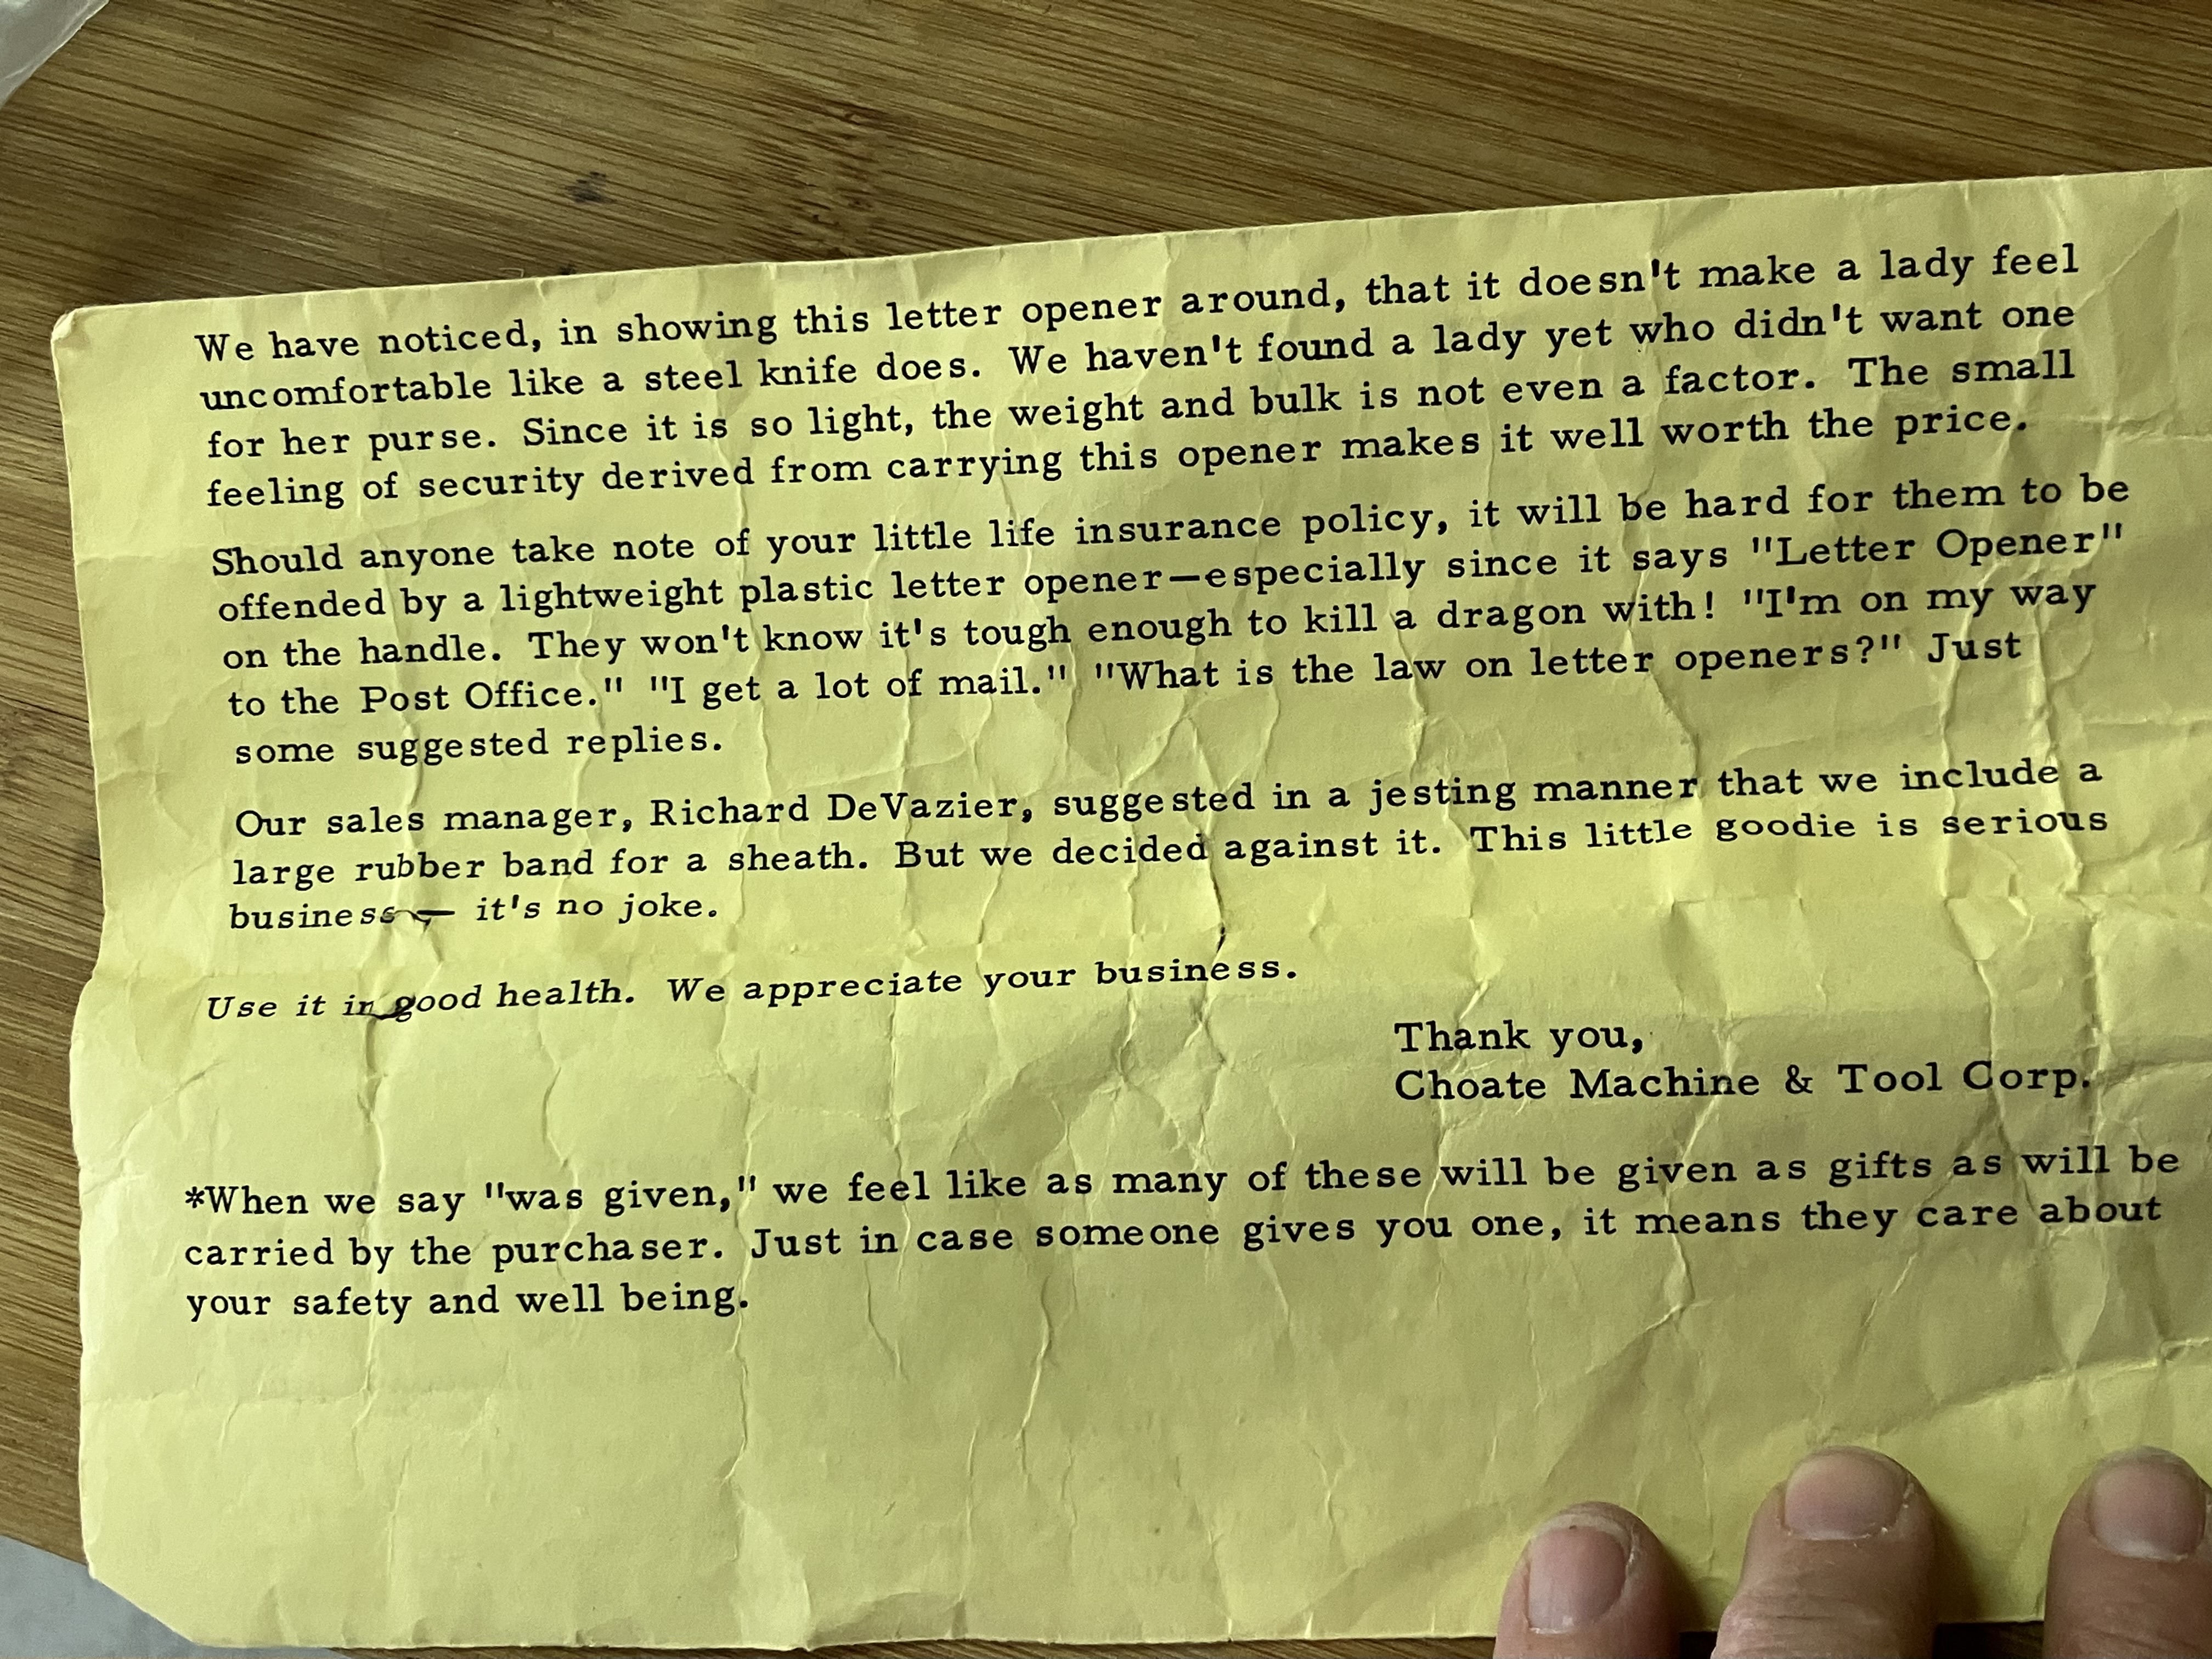 We have noticed, in showing this letter opener around, that it doesn't make a lady feel
uncomfortable like a steel knife does. We haven't found a lady yet who didn't want one
for her purse. Since it is so light, the weight and bulk is not even a factor. The small
feeling of security derived from carrying this opener makes it well worth the price.
Should anyone take note of your little life insurance policy, it will be hard for them to be
offended by a lightweight plastic letter opener—especially since it says "Letter Opener"
on the handle. They won't know it's tough enough to kill a dragon with! "I'm on my way
to the Post Office." "I get a lot of mail." "What is the law on letter openers?" Just
some suggested replies.
Our sales manager, Richard DeVazier, suggested in a jesting manner that we include a
large rubber band for a sheath. But we decided against it. This little goodie is serious
business — it's no joke.
Use it in good health. We appreciate your business.
Thank you,
Choate Machine & Tool Corp.
*When we say "was given," we feel like as many of these will be given as gifts as will be
carried by the purchaser. Just in case someone gives you one, it means they care about
your safety and well being.